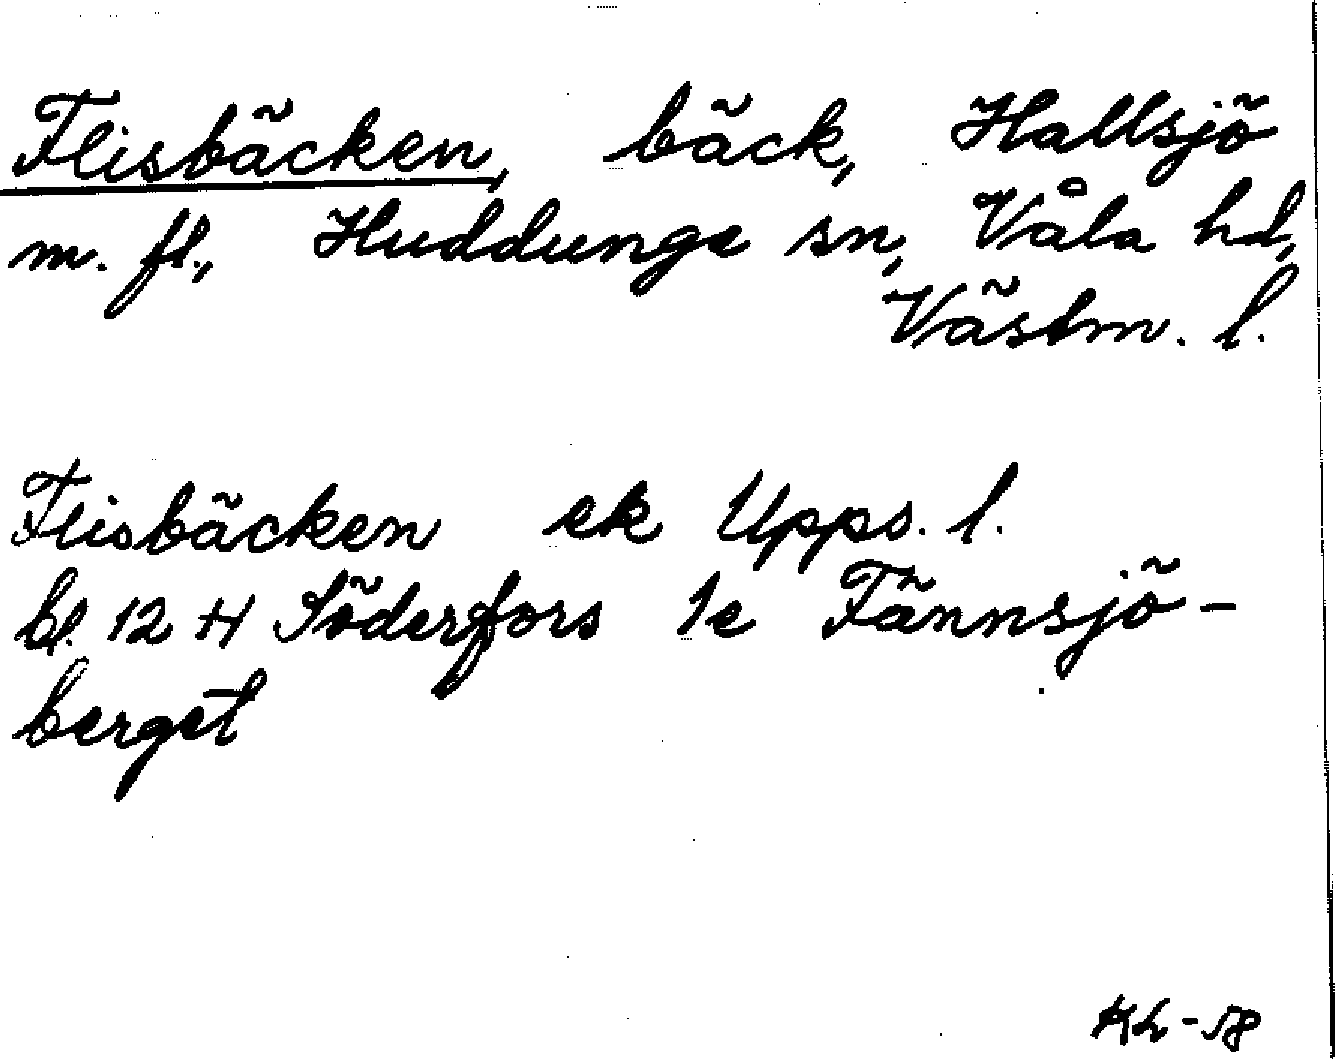 Flisbäcken, bäck, Hallsjö
m. fl., Huddunge sn, Våla hd,
Västm. l.
Flisbäcken ek Upps. l.
bl. 12 H Söderfors 1e Fännsjö-
berget
KL-58